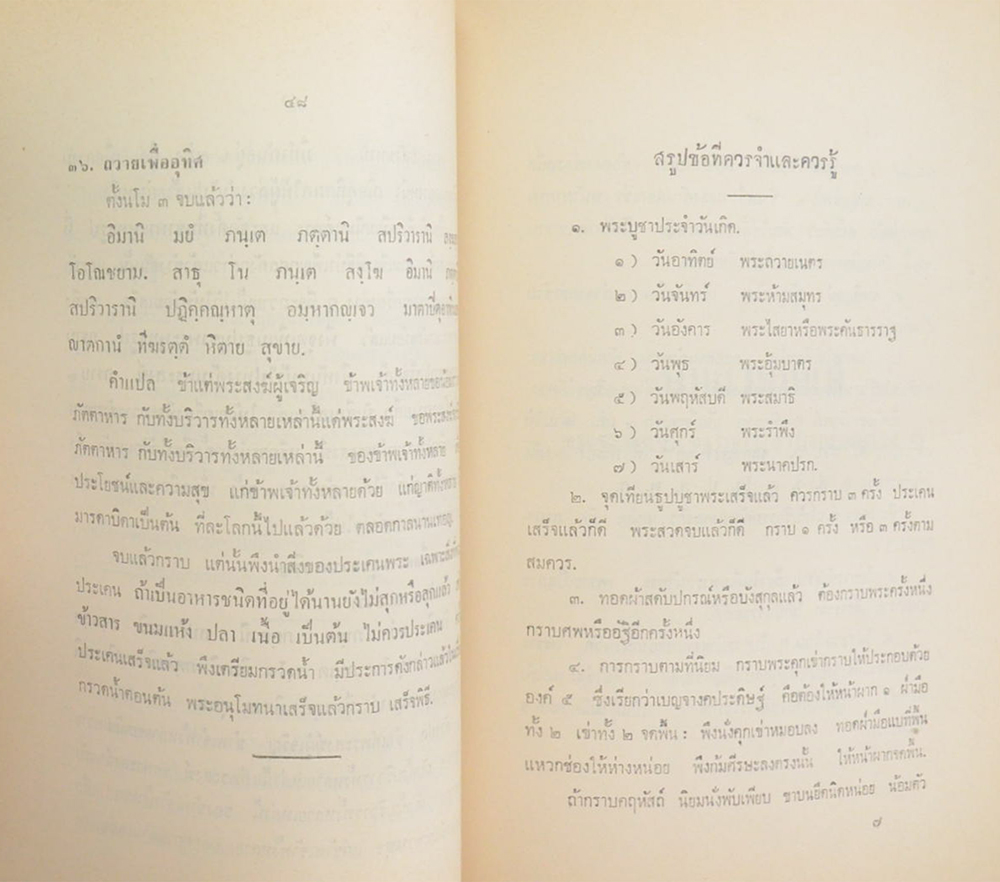 ๔๘
๓๖. ถวายเพื่ออุทิศ
ตั้งนโม ๓ จบแล้วว่า :
อิมานิ มยํ ภนฺเต ภตฺตานิ สปริวารานิ
โอโณชยาม. สาธุ โน ภนฺเต สงฺโฆ อิมานิ
สปริวารานิ ปฏิคฺคณฺหาตุ อมฺหากญฺเจว
ญาตกานํ ทีฆรตฺตํ หิตาย สุขาย.
คำแปล ข้าแต่พระสงฆ์ผู้เจริญ ข้าพเจ้าทั้งหลาย
ภัตตาหาร กับทั้งบริวารทั้งหลายเหล่านี้แด่พระสงฆ์
ภัตตาหาร กับทั้งบริวารทั้งหลายเหล่านี้ ของข้าพเจ้าทั้งหลาย
ประโยชน์และความสุข แก่ข้าพเจ้าทั้งหลายด้วย
มารดาบิดาเป็นต้น ที่ละโลกนี้ไปแล้วด้วย
จบแล้วกราบ แต่นั้นพึงนำสิ่งของประเคนพระ
ประเคน ถ้าเป็นอาหารชนิดที่อยู่ได้นานยังไม่สุกหรือสุกแล้ว
ข้าวสาร ขนมแห้ง ปลา เนื้อ เป็นต้น ไม่ควรประเคน
ประเคนเสร็จแล้ว พึงเตรียมกรวดน้ำ มีประการดังกล่าวแล้ว
กรวดน้ำตอนต้น พระอนุโมทนาเสร็จแล้วกราบ เสร็จพิธี.
สรุปข้อที่ควรจำและควรรู้
๑. พระบูชาประจำวันเกิด.
๑ ) วันอาทิตย์ พระถวายเนตร
๒ ) วันจันทร์ พระห้ามสมุทร
๓ ) วันอังคาร พระไสยาหรือพระคันธารราฐ
๔ ) วันพุธ พระอุ้มบาตร
๕ ) วันพฤหัสบดี พระสมาธิ
๖ ) วันศุกร์ พระรำพึง
๗ ) วันเสาร์ พระนาคปรก.
๒. จุดเทียนธูปบูชาพระเสร็จแล้ว ควรกราบ ๓ ครั้ง ประเคน
เสร็จแล้วก็ดี พระสวดจบแล้วก็ดี กราบ ๑ ครั้ง หรือ ๓ ครั้งตาม
สมควร.
๓. ทอดผ้าสดับปกรณ์หรือบังสุกุลแล้ว ต้องกราบพระครั้งหนึ่ง
กราบศพหรืออัฐิอีกครั้งหนึ่ง
๔. การกราบตามที่นิยม กราบพระคุกเข่ากราบให้ประกอบด้วย
องค์ ๕ ซึ่งเรียกว่าเบญจางคประดิษฐ์ คือต้องให้หน้าผาก ๑ ฝ่ามือ
ทั้ง ๒ เข่าทั้ง ๒ จดพื้น : พึงนั่งคุกเข่าหมอบลง ทอดฝ่ามือแบที่พื้น
แหวกช่องให้ห่างหน่อย พึงก้มศีรษะลงตรงนั้น ให้หน้าผากจดพื้น.
ถ้ากราบคฤหัสถ์ นิยมนั่งพับเพียบ ขาบนยืดนิดหน่อย น้อมตัว
๗